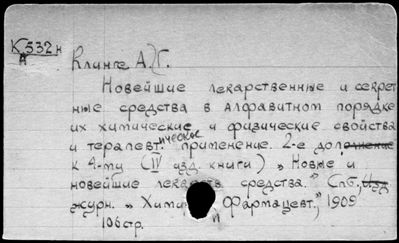 К 532 н
А
Клинге А.Г.
Новейшие лекарственные и секрет
ные средства в алфавитном порядке
их химические и физические свойства
и терапевтическое применение. 2-е дополнение
к 4-му (IV изд. книги) „Новые и
новейшие лекарств. средства." Спб., Изд.
журн. „Хими и Фармацевт.", 1909
106 стр.